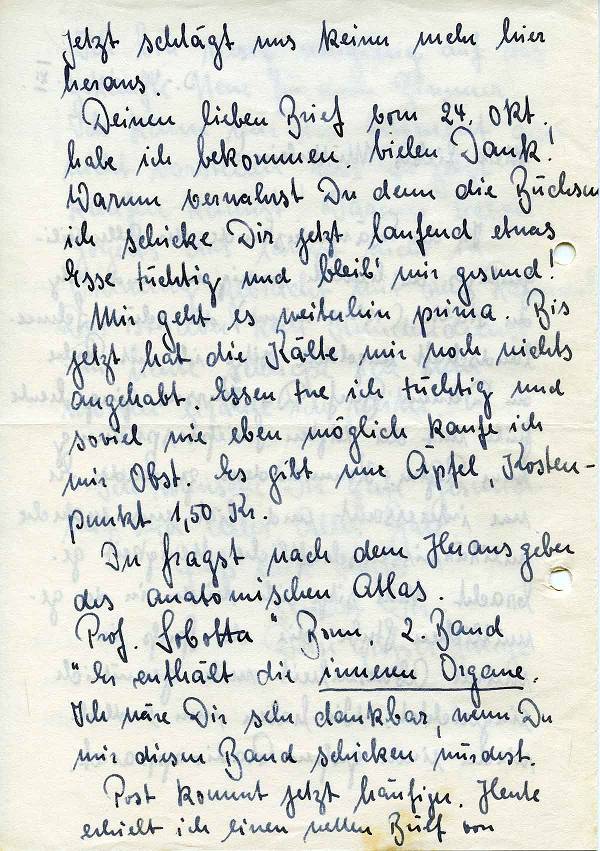 Jetzt schlägt uns keiner mehr hier
heraus.
Deinen lieben Brief vom 24. Okt.
habe ich bekommen, vielen Dank!
Warum verwahrst Du denn die Büchsen
ich schicke Dir jetzt laufend etwas
Esse tüchtig und bleib' mir gesund!
Mir geht es weiterhin prima. Bis
jetzt hat die Kälte mir noch nichts
angehabt. Essen tue ich tüchtig und
soviel wie eben möglich kaufe ich
mir Obst. Es gibt nur Äpfel Kosten-
punkt 1,50 Kr.
Du fragst nach dem Herausgeber
des anatomischen Atlas.
Prof. Sobotta" Bonn, 2. Band
"Er enthält die inneren Organe.
Ich wäre Dir sehr dankbar, wenn Du
mir diesen Band schicken würdest.
Post kommt jetzt häufiger. Heute
erhielt ich einen netten Brief von